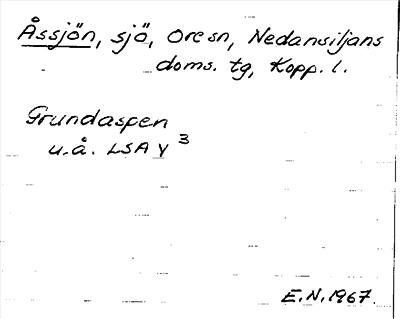 Åssjön, sjö, Ore sn, Nedansiljans
doms. tg, Kopp. l.
Grundaspen
u.å. LSA Y 3
E.N. 1967.